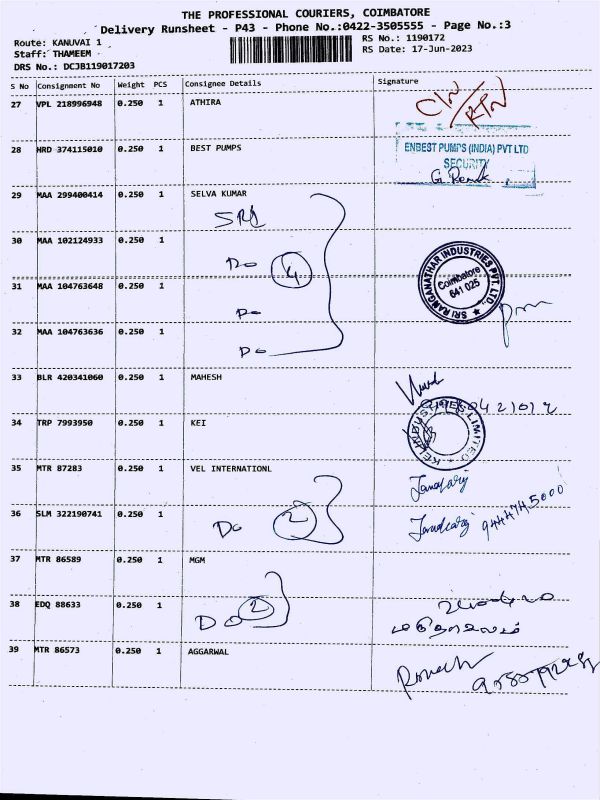 THE PROFESSIONAL COURIERS, COIMBATORE
Delivery Runsheet - P43 - Phone No.:0422-3505555 - Page No.:3
Route: KANUVAI 1
RS No.: 1190172
Staff: THAMEEM
RS Date: 17-Jun-2023
DRS No.: DCJB119017203
S No Consignment No Weight PCS Consignee Details Signature
27 VPL 218996948 0.250 1 ATHIRA
28 NRD 374115010 0.250 1 BEST PUMPS
ENBEST PUMPS (INDIA) PVT LTD
SECURITY
29 MAA 299400414 0.250 1 SELVA KUMAR
30 MAA 102124933 0.250 1
Do 4
SRI RANGANATHAR INDUSTRIES PVT. LTD.
Coimbatore
641 025
31 MAA 104763648 0.250 1
Do
32 MAA 104763636 0.250 1
Do
33 BLR 420341060 0.250 1 MAHESH
34 TRP 7993950 0.250 1 KEI
KEI INDUSTRIES LIMITED
35 MTR 87283 0.250 1 VEL INTERNATIONL
36 SLM 322190741 0.250 1
Do 2
9444745000
37 MTR 86589 0.250 1 MGM
38 EDQ 88633 0.250 1
DO 2
39 MTR 86573 0.250 1 AGGARWAL